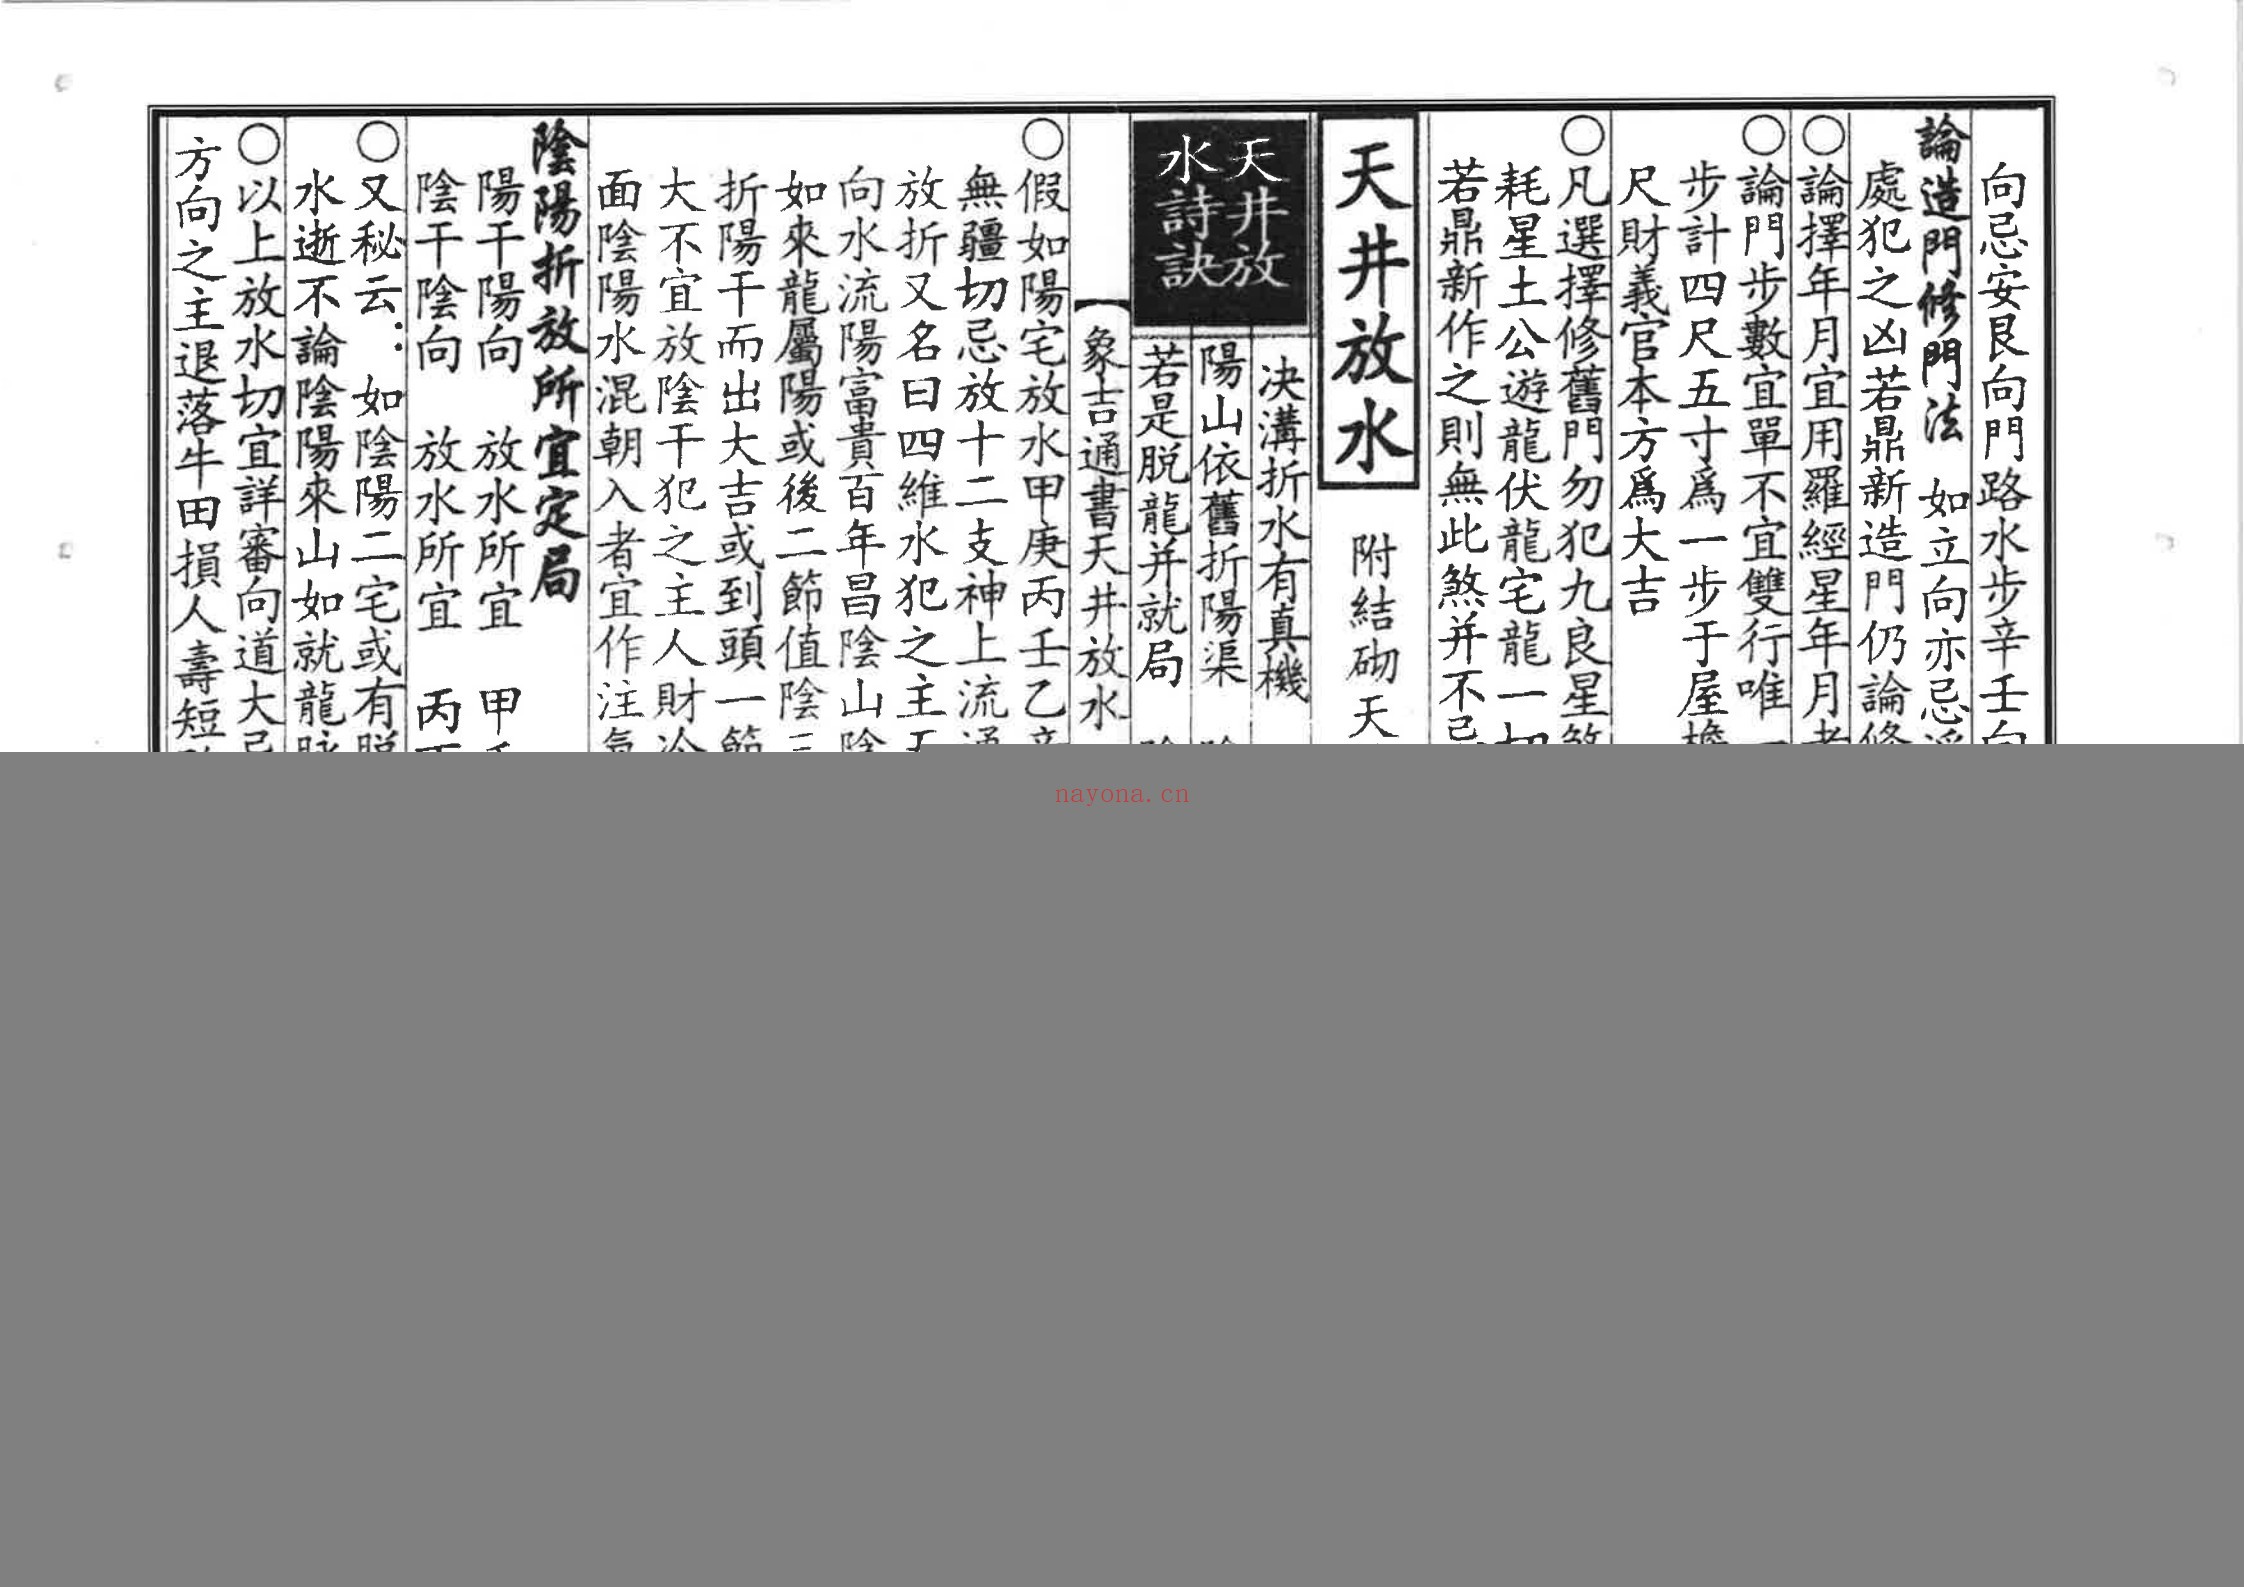 向忌安艮向門路水步辛壬向
論造門修門法 如立向亦忌
處犯之凶若鼎新造門仍論修
○論擇年月宜用羅經星年月者
○論門步數宜單不宜雙行唯一
步計四尺五寸爲一步于屋檐
尺財義官本方爲大吉
○凡選擇修舊門勿犯九良星煞
耗星土公遊龍伏龍宅龍一切
若鼎新作之則無此煞并不忌
天井放水 附結砌天
天井放水詩訣
決溝折水有真機
陽山依舊折陽渠
若是脱龍并就局
【象吉通書天井放水
○假如陽宅放水甲庚丙壬乙辛
無疆切忌放十二支神上流
放折又名曰四維水犯之主
向水流陽富貴百年昌陰山陰
如來龍屬陽或後二節值陰三
折陽干而出大吉或到頭一節
大不宜放陰干犯之主人財冷
面陰陽水混朝入者宜作注
陰陽折放所宜定局
陽干陽向 放水所宜 甲
陰干陰向 放水所宜 丙
○又秘云：如陰陽二宅或有脱
水逝不論陰陽來山如就龍脉
○以上放水切宜詳審向道大忌
方向之主退落牛田損人壽短
nayona.cn